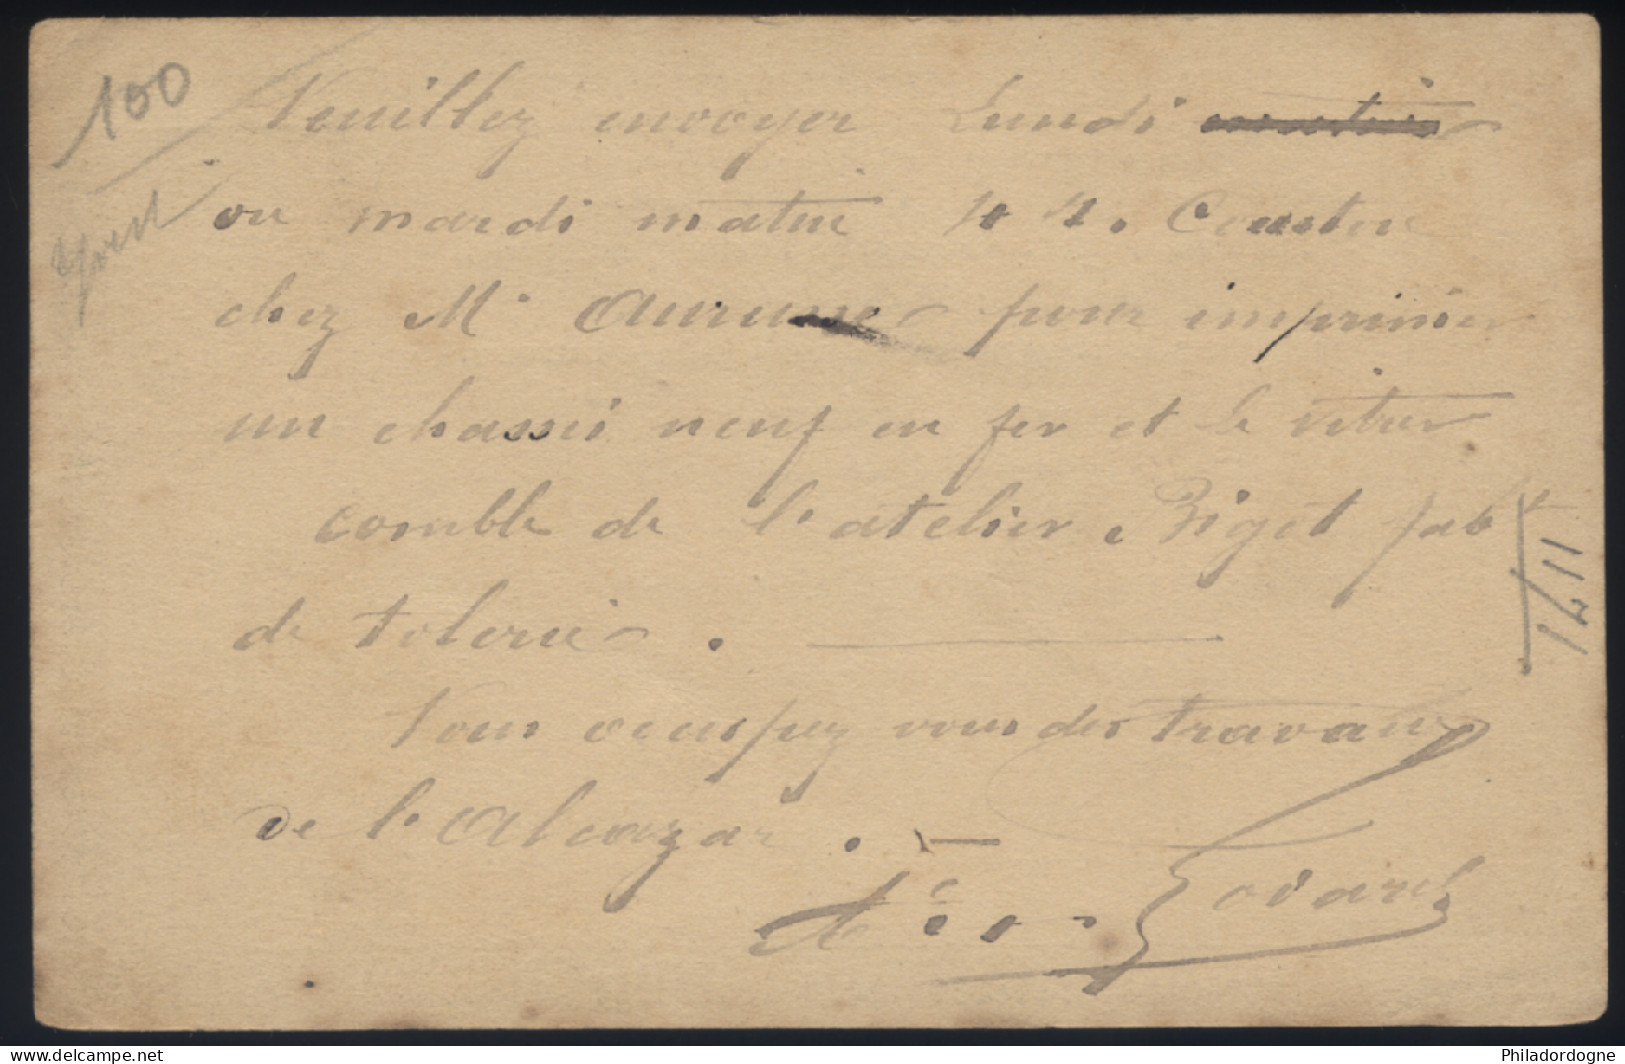 100
Yvert
Veuillez envoyer Lundi
ou mardi matin
chez Mr pour imprimer
un chassis neuf en fer et le vitrer
comble de l'atelier Biget fabt
de tolerie .
Vous occupez vous des travaux
de l'Alcazar . —
Godard
11/71
Delcampe.net
Philadordogne